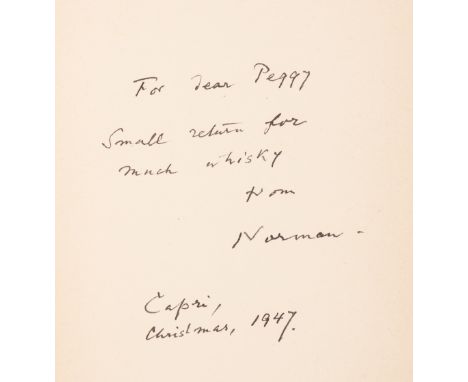 For dear Peggy
Small return for
much whisky
from
Norman -
Capri,
Christmas, 1947.